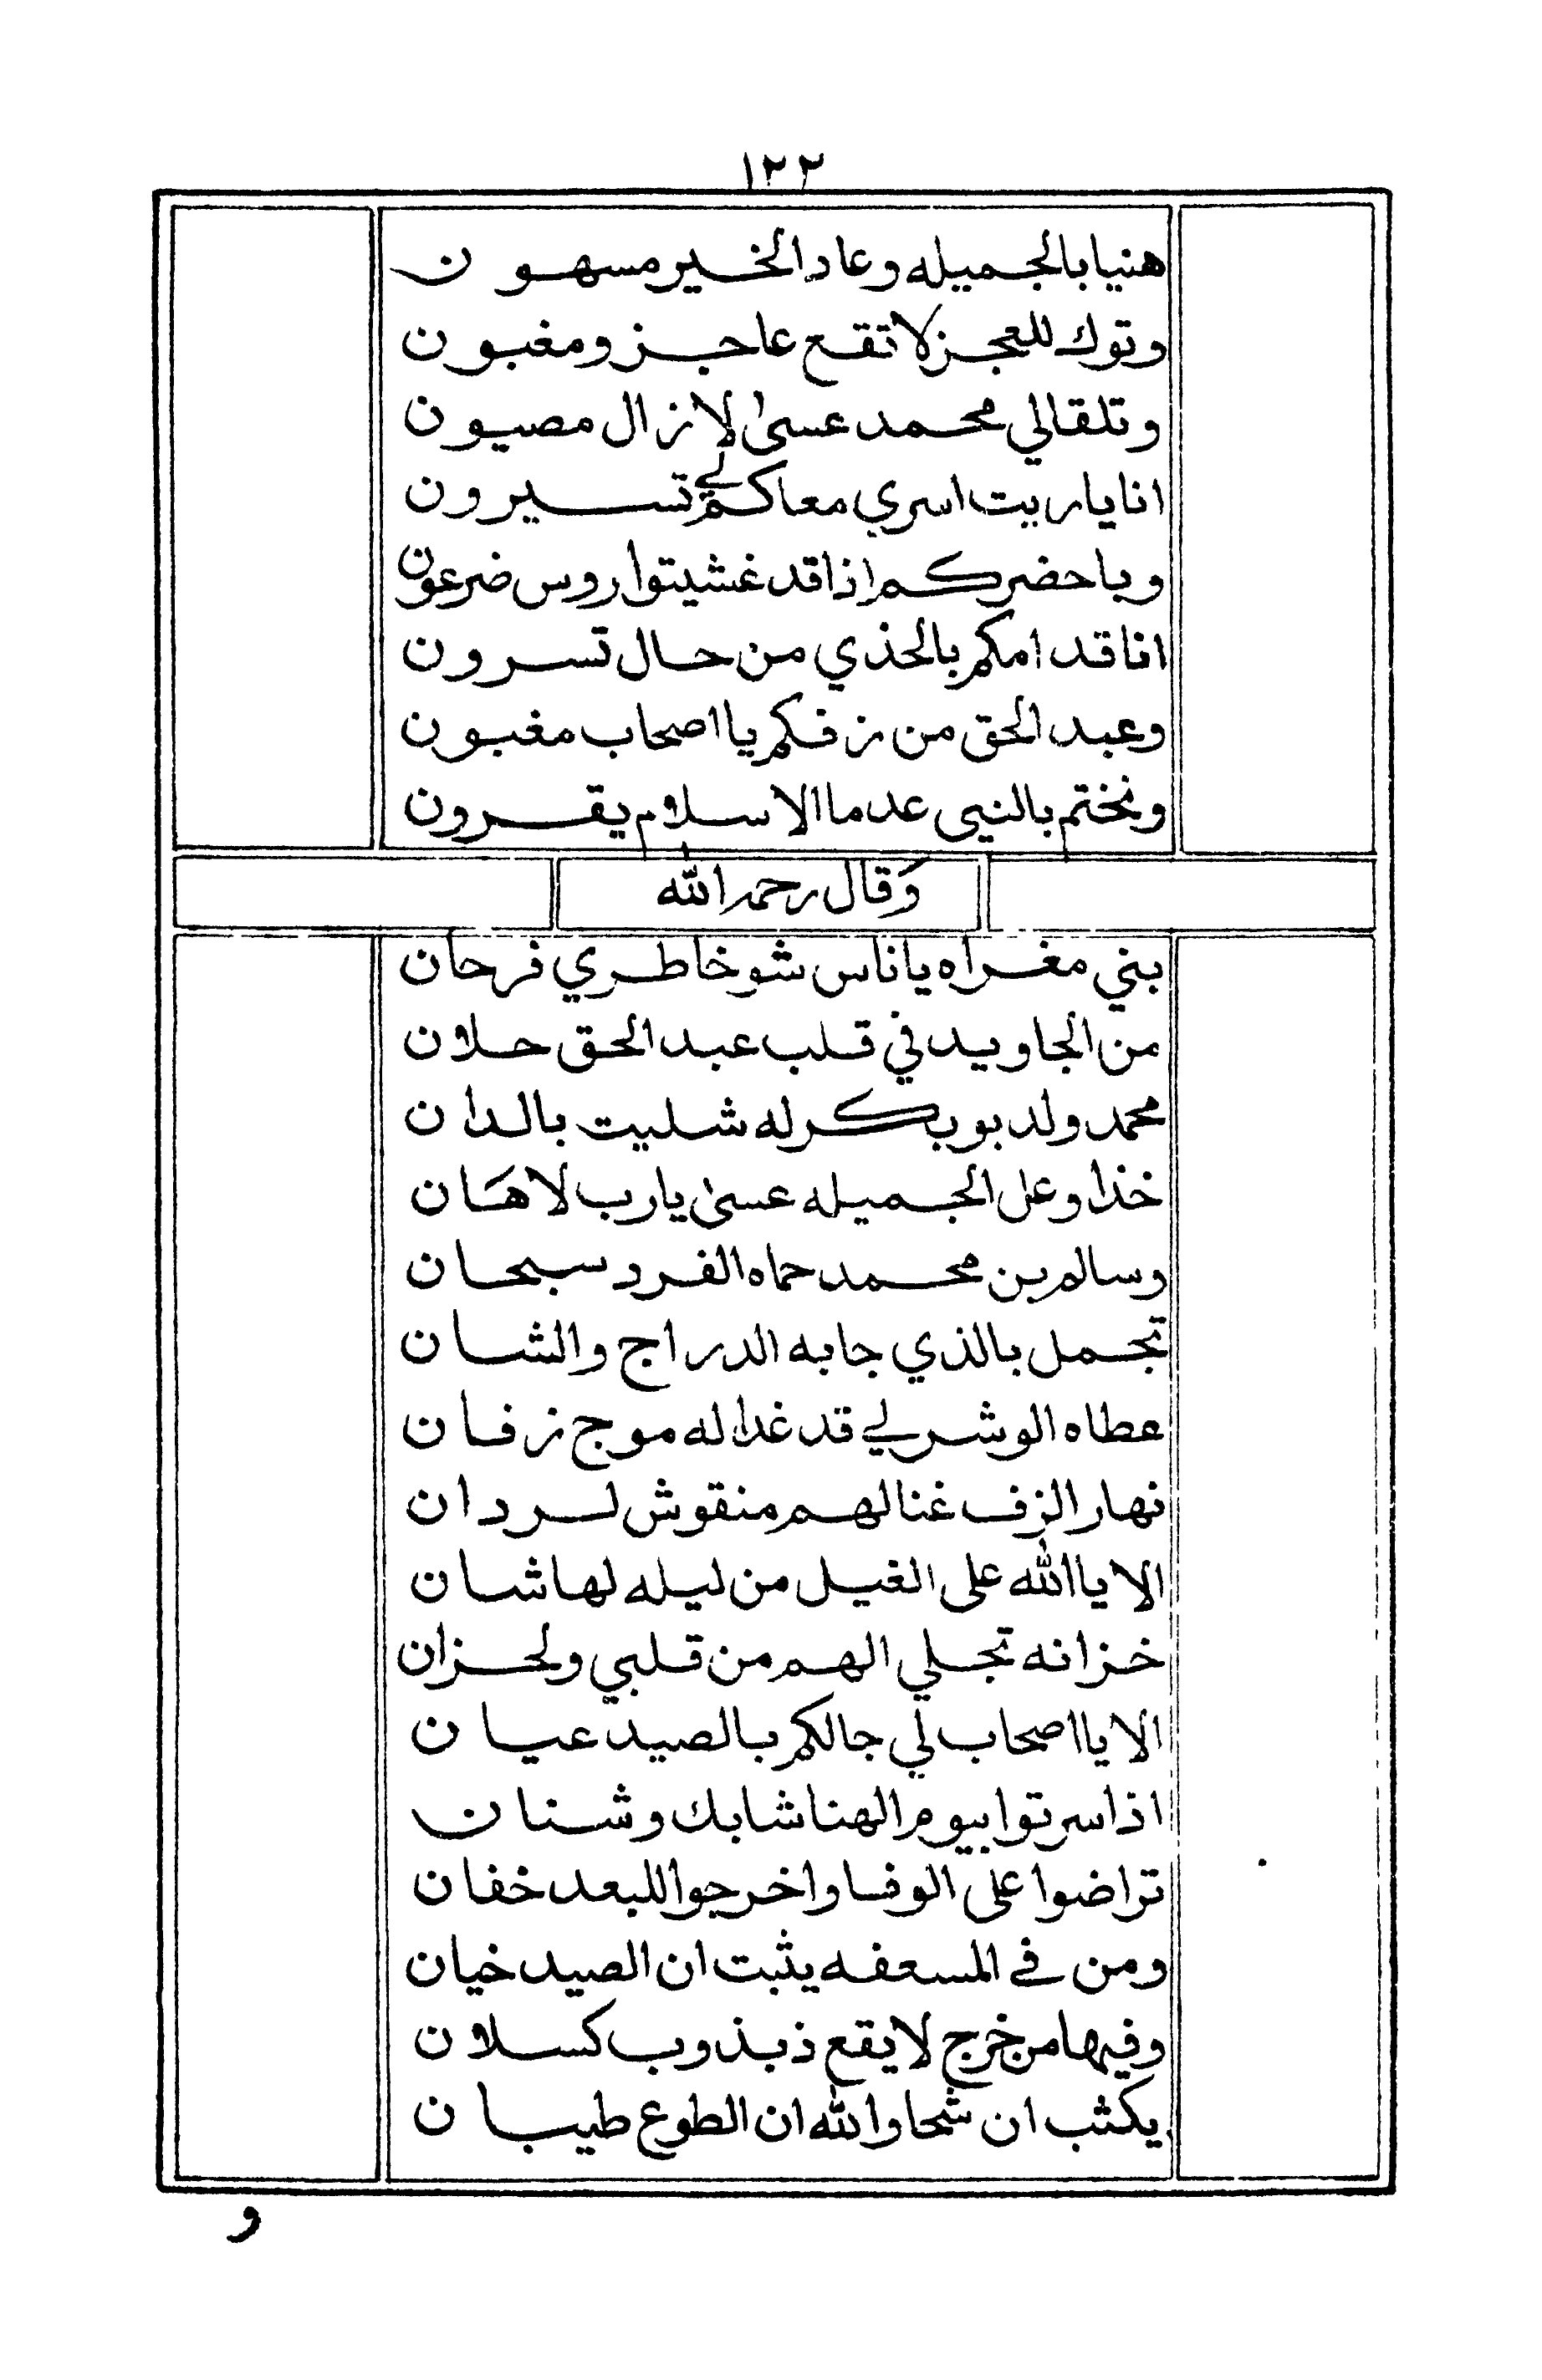 ١٢٢
هنيا بالجميله وعاد الخير مسهون
وتوك للعجز لا تقع عاجز ومغبون
وتلقالي محمد عسى لا زال مصيون
انا ياريت اسري معاكم لي تسيرون
وباحضركم اذا قد غشيتوا روس ضرعون
انا قدامكم بالحذي من حال تسرون
وعبد الحق من زفكم يا اصحاب مغبون
ونختم بالنبي عد ما الاسلام يقرون
وَقال رحمه الله
بني مغراه يا ناس شو خاطري فرحان
من الجاويد في قلب عبد الحق حلان
محمد ولد بوبكر له شليت بالدان
خذا وعل الجميله عسى يارب لا هَان
وسالم بن محمد حماه الفرد سبحان
تجمل بالذي جابه الدراج والشان
عطاه الوشر لي قد غدا له موج زفان
نهار الزف غنا لهم منقوش لردان
الا يا الله على الغيل من ليله لها شان
خزانه تجلي الهم من قلبي ولحزان
الا يا اصحاب لي جالكم بالصيد عيان
اذا سرتوا بيوم الهنا شابك وشنان
تراضوا على الوفا واخرجوا للبعد خفان
ومن في المسعفه يثبت ان الصيد خيان
وفيها من خرج لا يقع ذبذوب كسلان
يكثب ان شحا والله ان الطوع طيبان
و